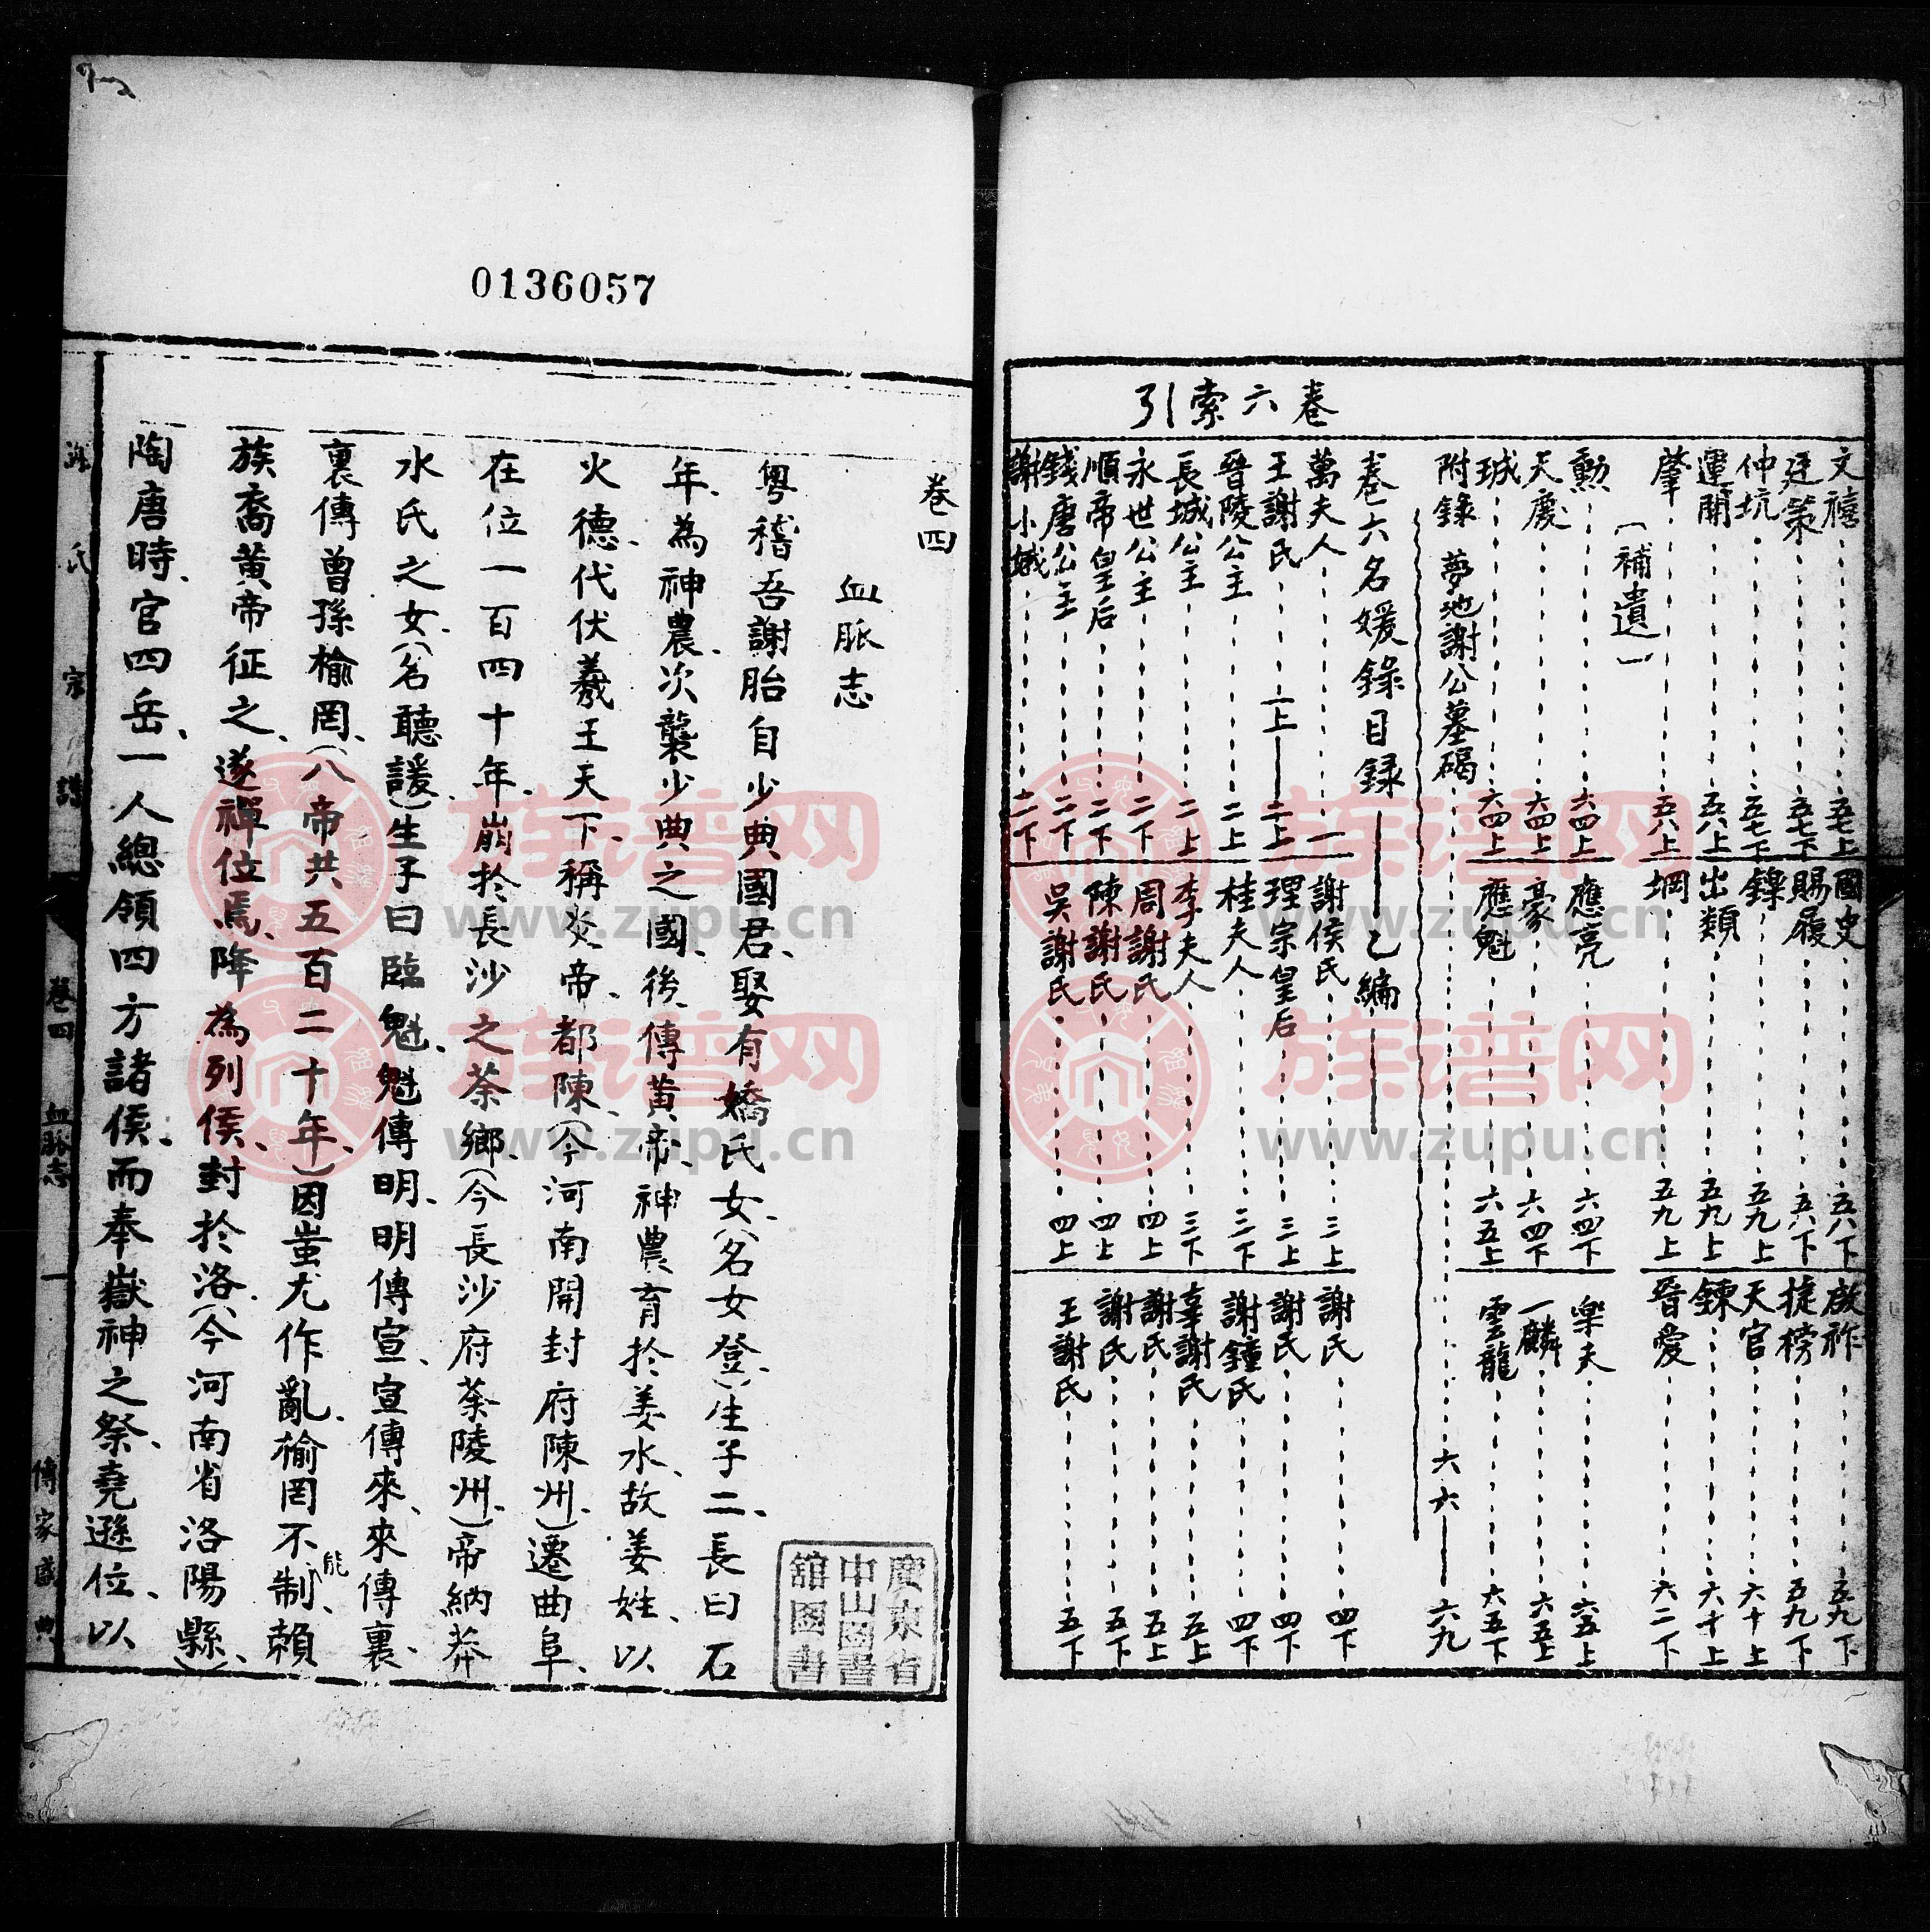 卷六索引
文禧 五七上
廷策 五七下
仲坑 五七下
運開 五八上
肇 五八上
國史 五八下
賜履 五八下
鏵 五九上
出類 五九上
堈 五九上
啟祚 五九下
捷榜 五九下
天官 六十上
鍊 六十上
晉愛 六二下
（補遺）
勳 六四上
天慶 六四上
珹 六四上
應亮 六四下
豪 六四下
應魁 六五上
樂夫 六五上
一麟 六五上
雲龍 六五下
附錄 夢池謝公墓碣 六六—六九
卷六名媛錄目錄——乙編——
萬夫人 一
王謝氏 二上—二上
晉陵公主 二上
長城公主 二上
永世公主 二下
順帝皇后 二下
錢唐公主 二下
謝小娥 二下
謝侯氏 三上
理宗皇后 三上
桂夫人 三下
李夫人 三下
周謝氏 四上
陳謝氏 四上
吳謝氏 四上
謝氏 四下
謝氏 四下
謝鐘氏 四下
辜謝氏 五上
謝氏 五上
謝氏 五下
王謝氏 五下
0136057
卷四
血脈志
粵稽吾謝胎自少典國君、娶有嬌氏女、（名女登、）生子二、長曰石
年、為神農、次襲少典之國、後傳黃帝、神農育於姜水、故姜姓、以
火德、代伏羲王天下、稱炎帝、都陳、（今河南開封府陳州、）遷曲阜、
在位一百四十年、崩於長沙之荼鄉、（今長沙府荼陵州、）帝納莽
水氏之女、（名聽詙）生子曰臨魁、魁傳明、明傳宣、宣傳來、來傳裏、
裏傳曾孫榆罔、（八帝共五百二十年、）因蚩尤作亂、榆罔不能制、賴
族喬黃帝征之、遂禪位焉、降為列侯、封於洛、（今河南省洛陽縣、）
陶唐時、官四岳、一人總領四方諸侯、而奉嶽神之祭、堯遜位、以
謝氏宗譜 卷四 血脈志 一 傳家盛典
廣東省
中山圖書
館圖書
族谱网
www.zupu.cn
族谱网
www.zupu.cn
族谱网
www.zupu.cn
族谱网
www.zupu.cn